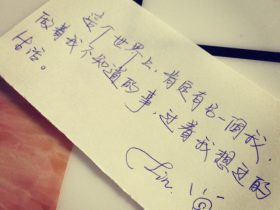 这个世界上，肯定有另一個我，
做着我不知道的事，过着我想过的
生活。
Lin.